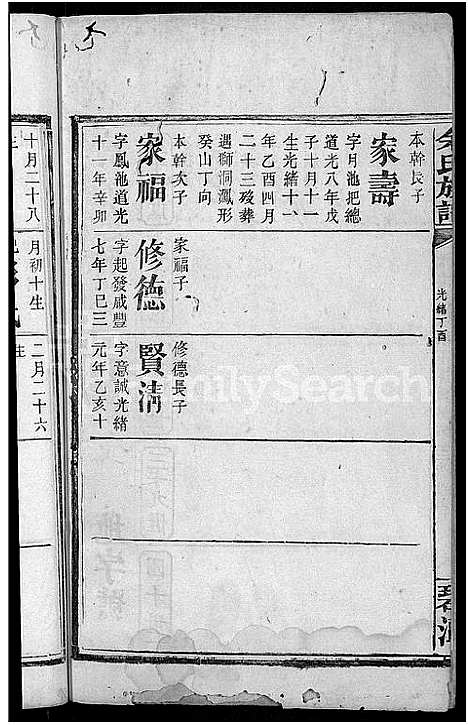 余氏族譜
光緒丁酉
本幹長子
家壽
字月池把總
道光八年戊
子十月十一
生光緒十一
年乙酉四月
二十三歿葬
遇獅洞鳳形
癸山丁向
本幹次子
家福
字鳳池道光
十一年辛卯
家福子
修德
字起發咸豐
七年丁巳三
修德長子
賢清
字意誠光緒
元年乙亥十
十月二十八
月初十生
二月二十六
生
FamilySearch